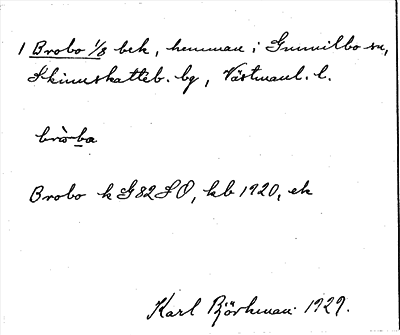 1 Brobo 1/8 bek, hemman i Gunnilbo sn,
Skinnskatteb. bg, Västmanl. l.
brò̀ba
Brobo k G82SO, kb 1920, ek
Karl Björkman 1929.